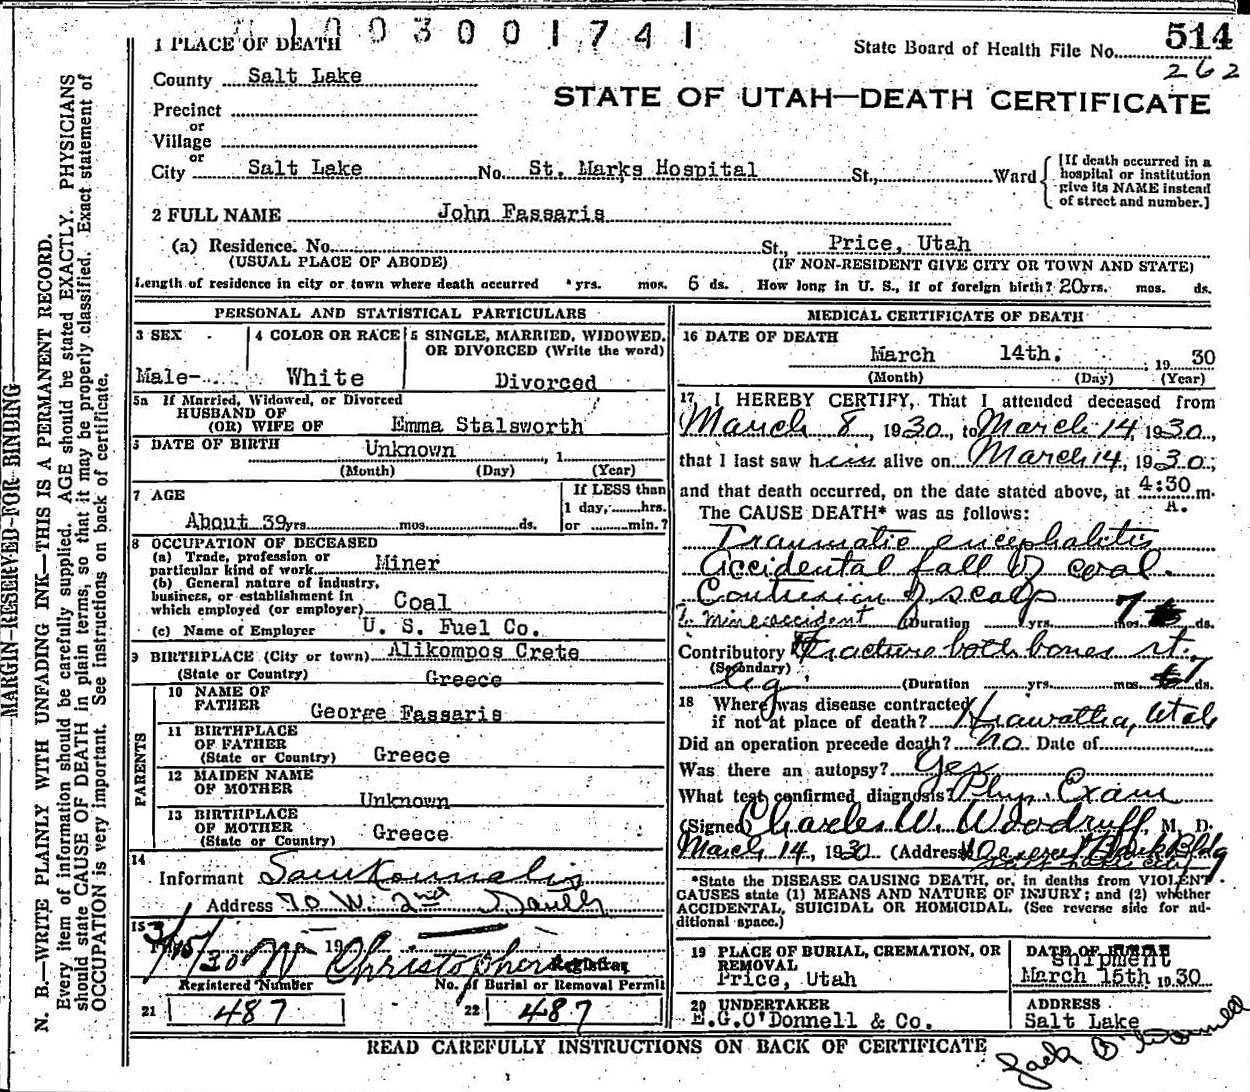 1003001741
1 PLACE OF DEATH
State Board of Health File No. 514
262
County Salt Lake
STATE OF UTAH—DEATH CERTIFICATE
Precinct
or
Village
or
City Salt Lake No. St. Marks Hospital St., Ward
[If death occurred in a
hospital or institution
give its NAME instead
of street and number.]
2 FULL NAME John Fassaris
(a) Residence. No. St., Price, Utah
(USUAL PLACE OF ABODE) (IF NON-RESIDENT GIVE CITY OR TOWN AND STATE)
Length of residence in city or town where death occurred yrs. mos. 6 ds. How long in U. S., if of foreign birth? 20 yrs. mos. ds.
PERSONAL AND STATISTICAL PARTICULARS
3 SEX
Male-
4 COLOR OR RACE
White
5 SINGLE, MARRIED, WIDOWED,
OR DIVORCED (Write the word)
Divorced
5a If Married, Widowed, or Divorced
HUSBAND OF
(OR) WIFE OF Emma Stalsworth
DATE OF BIRTH Unknown , 1
(Month) (Day) (Year)
7 AGE
About 39 yrs. mos. ds.
If LESS than
1 day, hrs.
or min.?
8 OCCUPATION OF DECEASED
(a) Trade, profession or
particular kind of work Miner
(b) General nature of industry,
business, or establishment in
which employed (or employer) Coal
(c) Name of Employer U. S. Fuel Co.
9 BIRTHPLACE (City or town) Alikompos Crete
(State or Country) Greece
PARENTS
10 NAME OF
FATHER George Fassaris
11 BIRTHPLACE
OF FATHER
(State or Country) Greece
12 MAIDEN NAME
OF MOTHER
Unknown
13 BIRTHPLACE
OF MOTHER
(State or Country) Greece
14
Informant
Address 70 W. 2nd
15
3/15/30 19 W Christopher
Registrar
Registered Number No. of Burial or Removal Permit
21 487 22 487
MEDICAL CERTIFICATE OF DEATH
16 DATE OF DEATH
March 14th. , 19 30
(Month) (Day) (Year)
17 I HEREBY CERTIFY, That I attended deceased from
March 8, 1930, to March 14, 1930,
that I last saw him alive on March 14, 1930,
and that death occurred, on the date stated above, at 4:30 m.
A.
The CAUSE DEATH* was as follows:
Traumatic encephalitis
Accidental fall of coal.
Contusion of scalp
mine accident (Duration yrs. mos. 7 ds.
Contributory Fracture both bones rt.
(Secondary)
leg (Duration yrs. mos. 7 ds.
18 Where was disease contracted
if not at place of death? Hiawatha, Utah
Did an operation precede death? No Date of
Was there an autopsy? Yes
What test confirmed diagnosis? Phys. Exam
(Signed) Charles W. Woodruff, M. D.
March 14, 1930 (Address) Deseret Bank Bldg
*State the DISEASE CAUSING DEATH, or, in deaths from VIOLENT
CAUSES state (1) MEANS AND NATURE OF INJURY; and (2) whether
ACCIDENTAL, SUICIDAL OR HOMICIDAL. (See reverse side for ad-
ditional space.)
19 PLACE OF BURIAL, CREMATION, OR
REMOVAL
Price, Utah
DATE OF
Shipment
March 15th 1930
20 UNDERTAKER
E.G.O'Donnell & Co.
ADDRESS
Salt Lake
Jack O'Donnell
READ CAREFULLY INSTRUCTIONS ON BACK OF CERTIFICATE
MARGIN RESERVED FOR BINDING
N. B.—WRITE PLAINLY WITH UNFADING INK—THIS IS A PERMANENT RECORD.
Every item of information should be carefully supplied. AGE should be stated EXACTLY. PHYSICIANS
should state CAUSE OF DEATH in plain terms, so that it may be properly classified. Exact statement of
OCCUPATION is very important. See instructions on back of certificate.